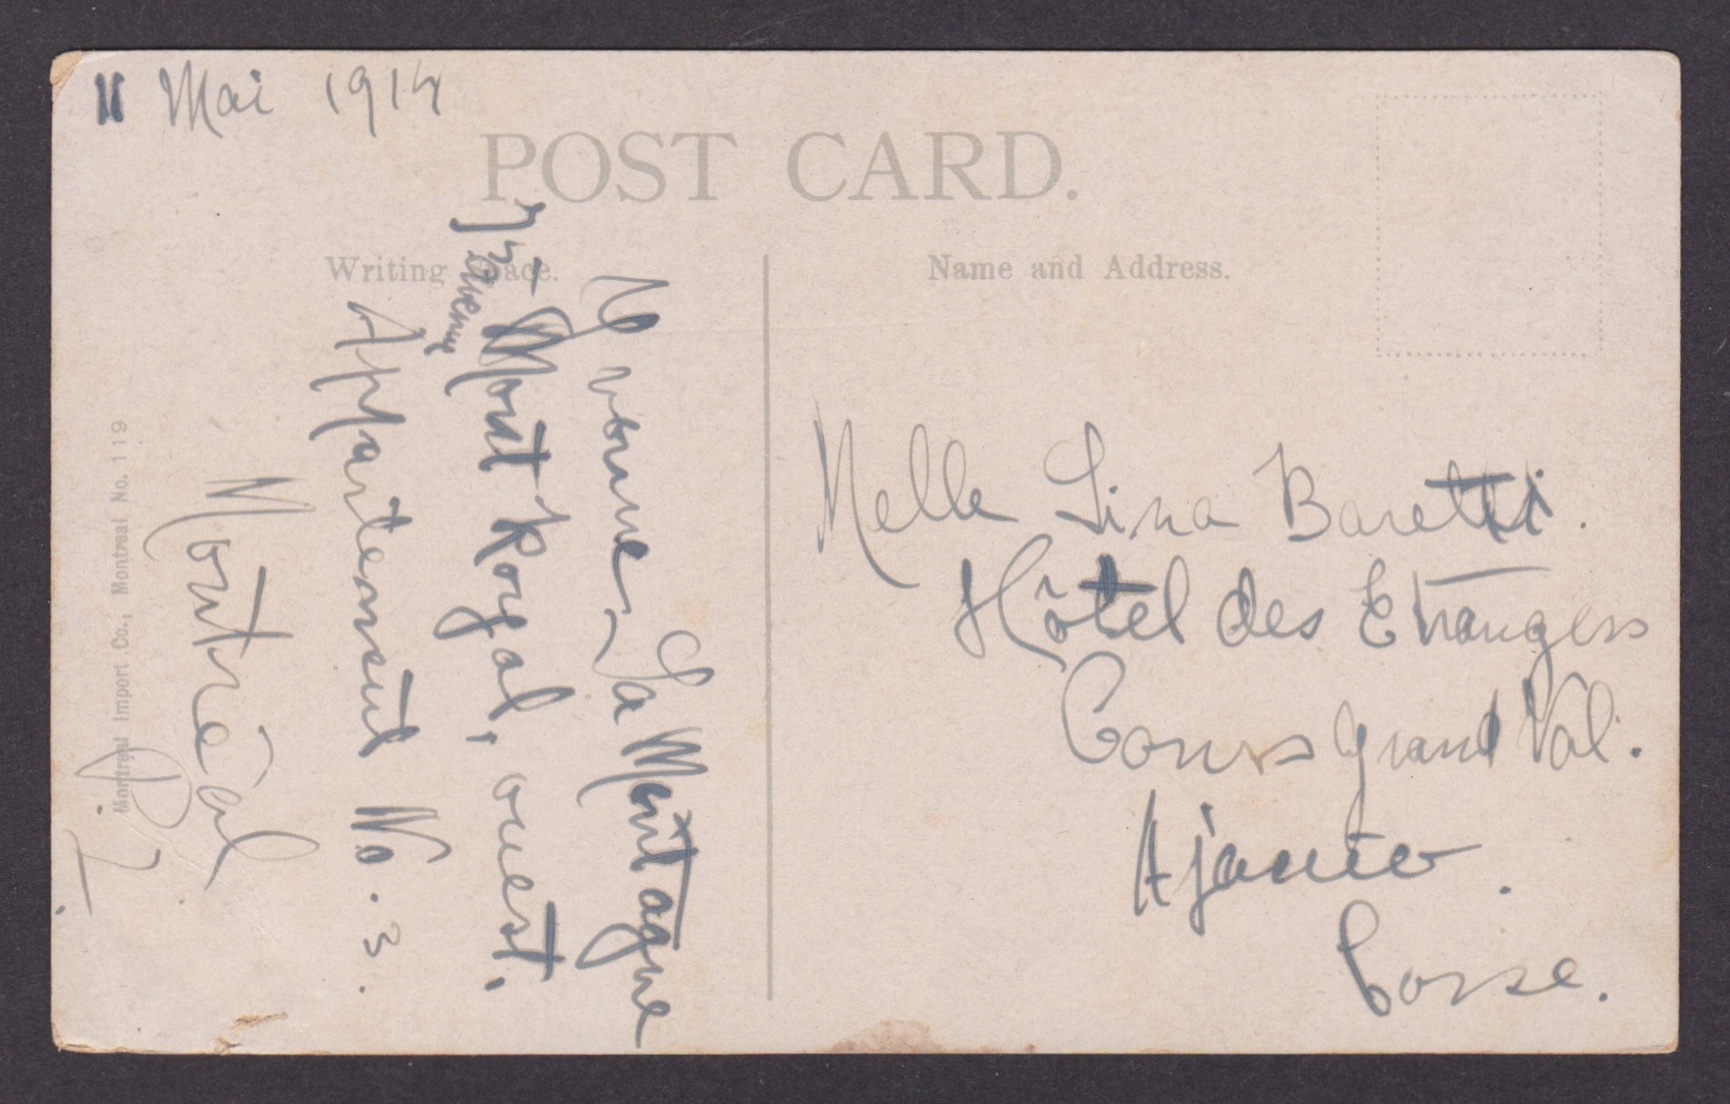 11 Mai 1914
POST CARD.
Writing Space.
Name and Address.
Yvonne La Montagne
73 - Mont Royal, ouest.
avenue
Appartement No. 3.
Montréal
P.
Montreal Import Co., Montreal No. 119
Melle Lina Baretti.
Hôtel des Etrangers
Cours Grand Val.
Ajaccio.
Corse.